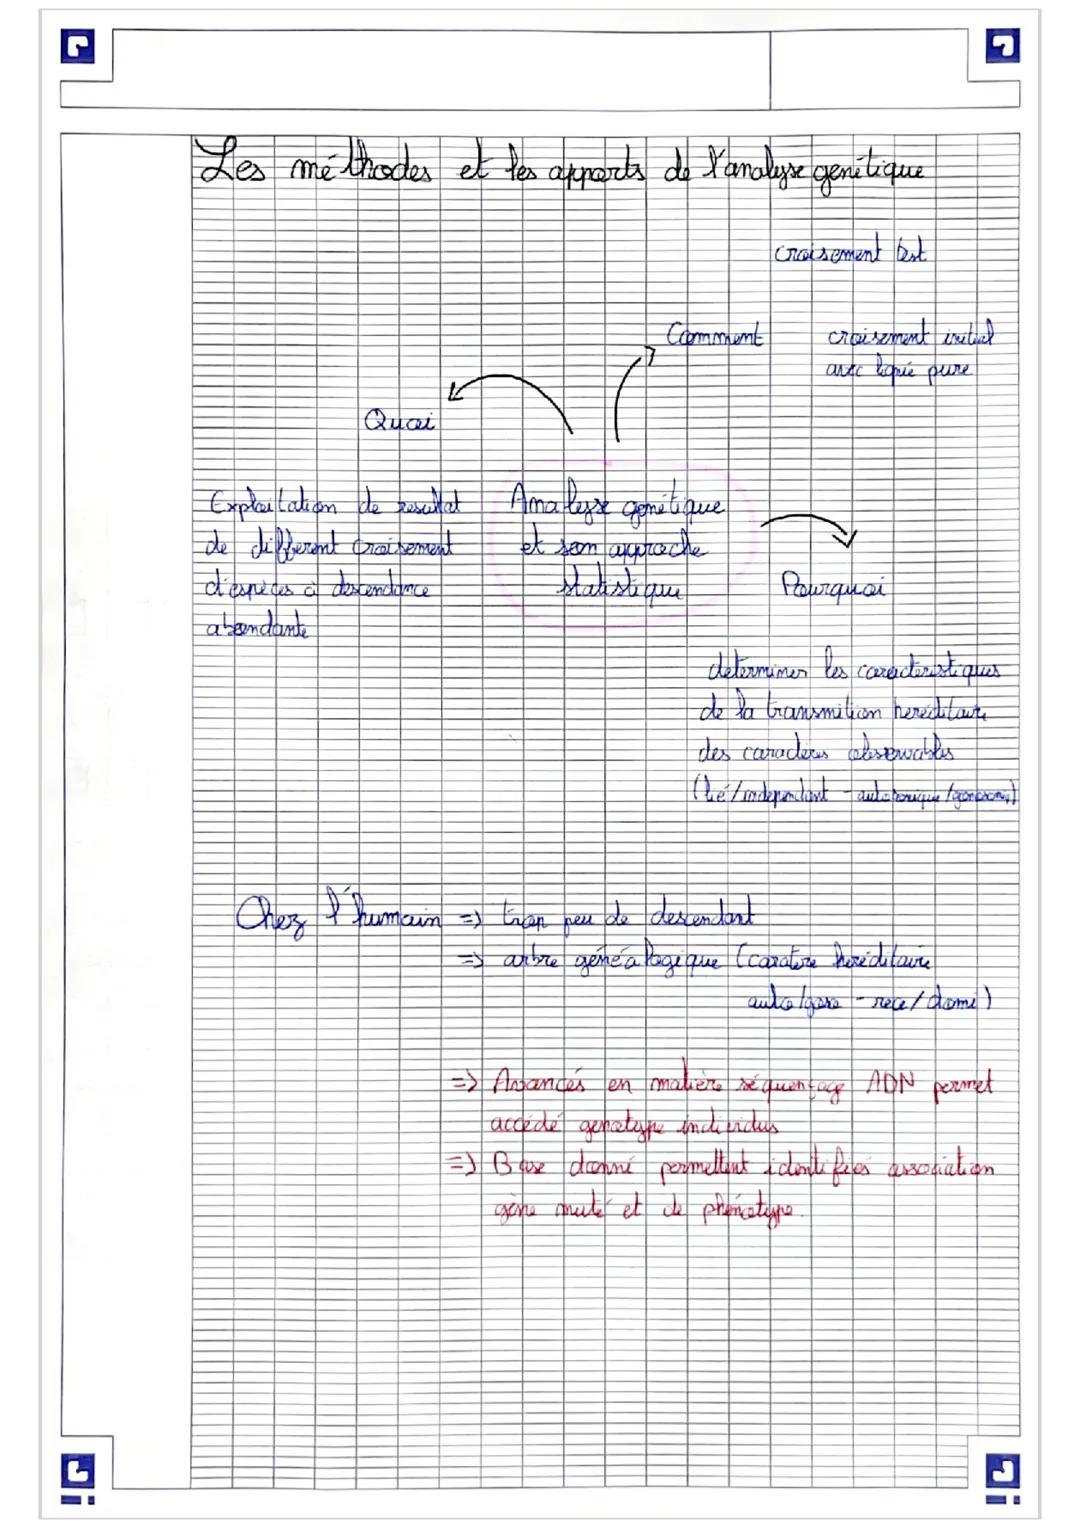 Les méthodes et les apports de l'analyse génétique
croisement test
Comment
croisement initial
avec lignée pure
Quoi
Exploitation de resultat
de différent croisement
d'espèces à descendance
abondante
Analyse génétique
et son approche
statistique
Pourquoi
determiner les caracteristiques
de la transmition hereditaire
des caractères observables
(lié/independant - autosomique/gonosom)
Chez l'humain => trop peu de descendant
=> arbre généalogique (caratère héréditaire
auto/gono - rece/domi)
=> Avancés en matière séquençage ADN permet
accédé genotype individus
=> Base donné permettent identifiés association
gène muté et de phénotype.